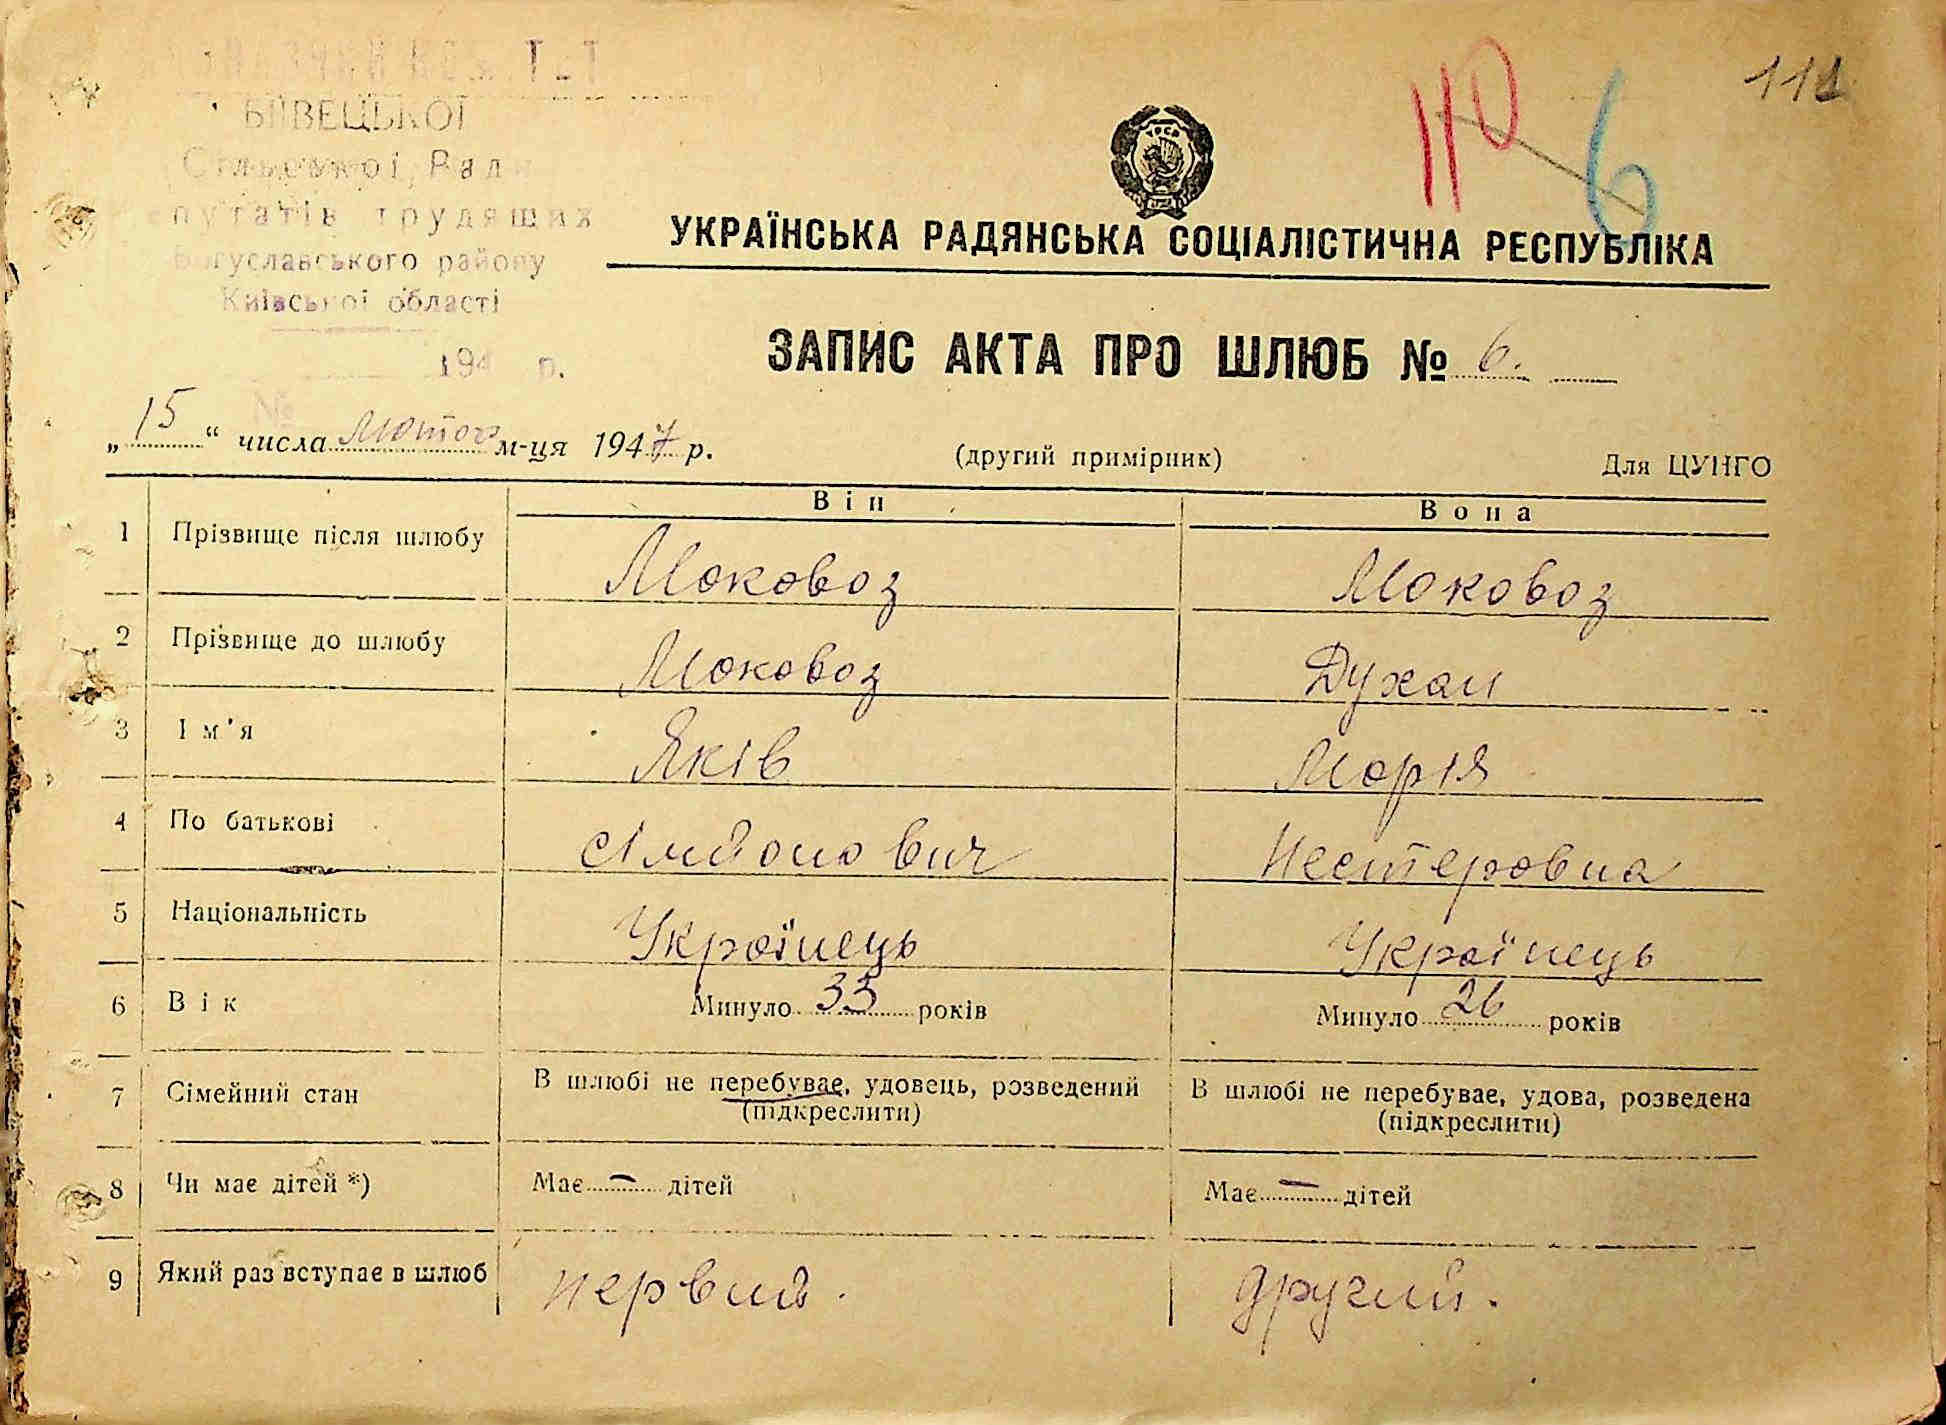 БІЇВЕЦЬКОЇ
Сільської Ради
депутатів трудящих
Богуславського району
Київської області
194 р.
№
110
6
111
УРСР
УКРАЇНСЬКА РАДЯНСЬКА СОЦІАЛІСТИЧНА РЕСПУБЛІКА
ЗАПИС АКТА ПРО ШЛЮБ № 6.
„15“ числа лютого м-ця 1947 р.
(другий примірник)
Для ЦУНГО
Він
Вона
1 Прізвище після шлюбу Моковоз Моковоз
2 Прізвище до шлюбу Моковоз Духан
3 Ім'я Яків Марія
4 По батькові Сімйонович Нестеровна
5 Національність Українець Українець
6 Вік Минуло 33 років Минуло 26 років
7 Сімейний стан В шлюбі не перебуває, удовець, розведений В шлюбі не перебуває, удова, розведена
(підкреслити) (підкреслити)
8 Чи має дітей *) Має — дітей Має — дітей
9 Який раз вступає в шлюб первий. другий.